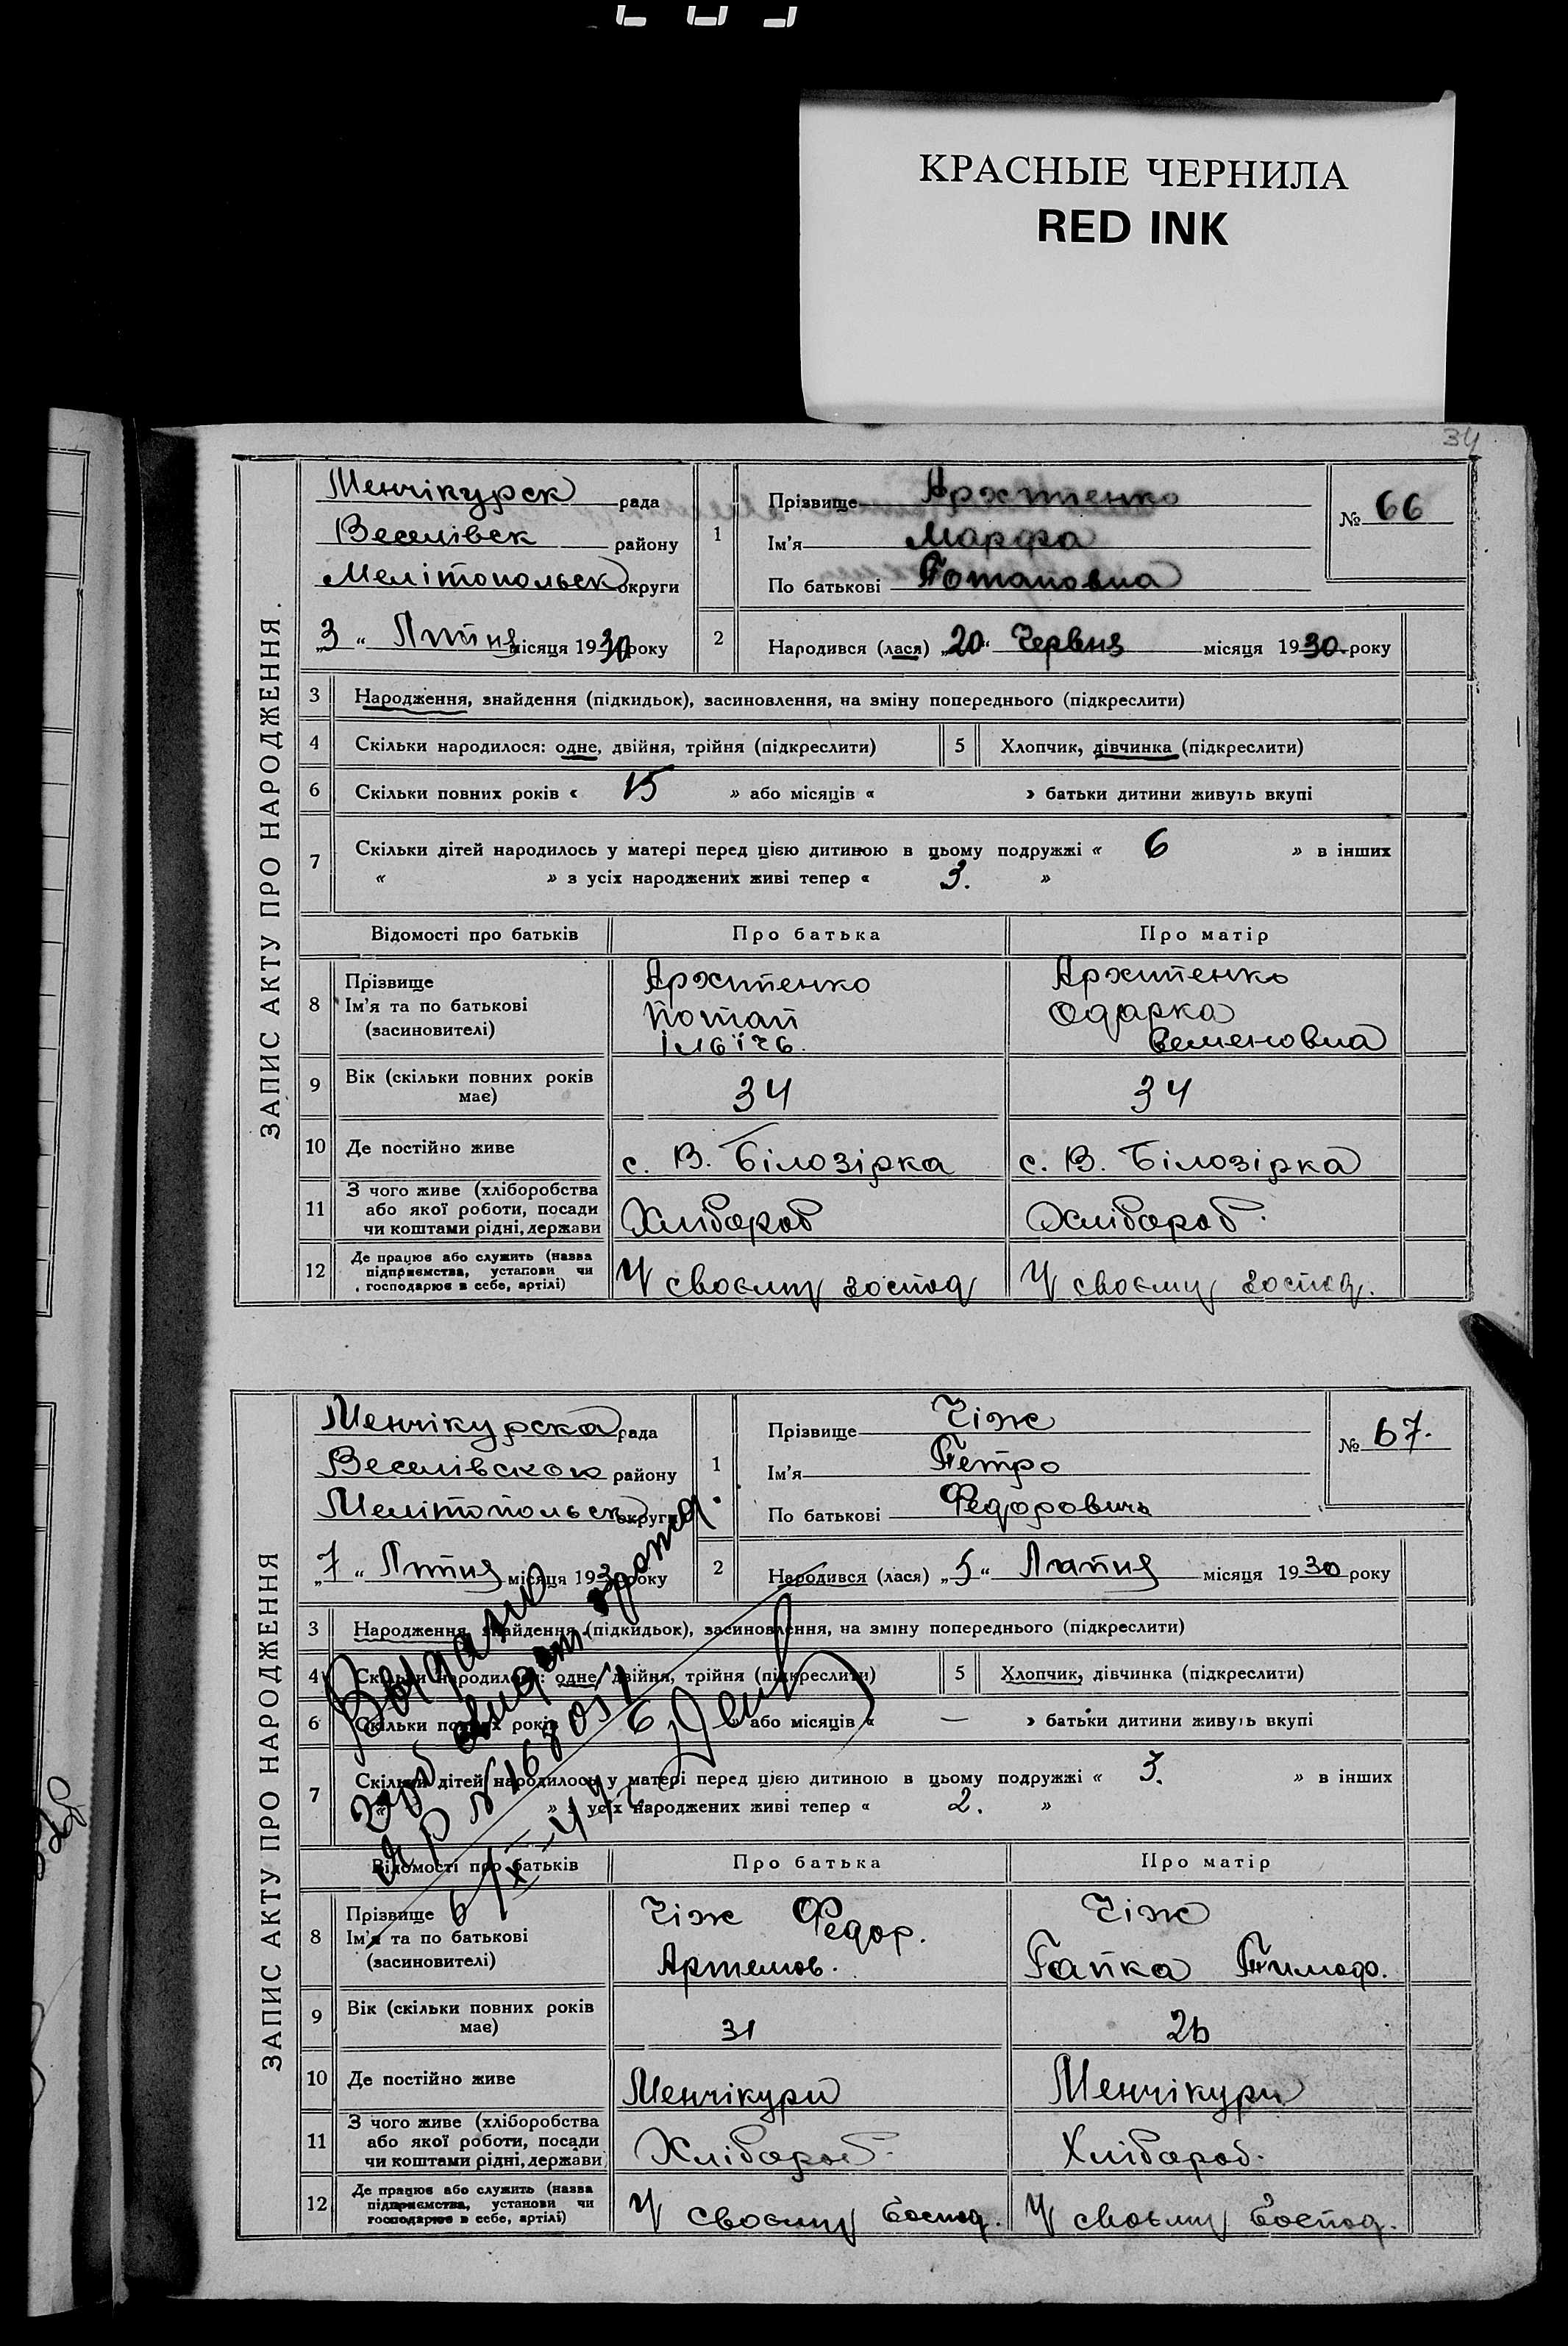 КРАСНЫЕ ЧЕРНИЛА
RED INK
34
ЗАПИС АКТУ ПРО НАРОДЖЕННЯ.
Менчікурск рада
Веселівск району
Мелітопольск округи
„3“ Липня місяця 1930 року
1
Прізвище Архипенко
Ім'я Марфа
По батькові Потаповна
№ 66
2 Народився (лася) „20“ Червня місяця 1930 року
3 Народження, знайдення (підкидьок), засиновлення, на зміну попереднього (підкреслити)
4 Скільки народилося: одне, двійня, трійня (підкреслити) 5 Хлопчик, дівчинка (підкреслити)
6 Скільки повних років « 15 » або місяців « » батьки дитини живуть вкупі
7 Скільки дітей народилось у матері перед цією дитиною в цьому подружжі « 6 » в інших
« » з усіх народжених живі тепер « 3. »
Відомості про батьків Про батька Про матір
8 Прізвище Ім'я та по батькові (засиновителі)
Архипенко Потап Ільїчь.
Архипенко Одарка Семеновна
9 Вік (скільки повних років має) 34 34
10 Де постійно живе с. В. Білозірка с. В. Білозірка
11 З чого живе (хліборобства або якої роботи, посади чи коштами рідні, держави Хлібороб Хлібороб.
12 Де працює або служить (назва підприємства, установи чи господарює в себе, артілі) У своєму господ У своєму господ.
ЗАПИС АКТУ ПРО НАРОДЖЕННЯ
Менчікурска рада
Веселівского району
Мелітопольск округи
„7“ Липня місяця 1930 року
1
Прізвище Чіж
Ім'я Петро
По батькові Федоровичь
№ 67.
2 Народився (лася) „5“ Липня місяця 1930 року
3 Народження, знайдення (підкидьок), засиновлення, на зміну попереднього (підкреслити)
4 Скільки народилося: одне, двійня, трійня (підкреслити) 5 Хлопчик, дівчинка (підкреслити)
6 Скільки повних років 6 » або місяців « — » батьки дитини живуть вкупі
7 Скільки дітей народилось у матері перед цією дитиною в цьому подружжі « 3. » в інших
« » з усіх народжених живі тепер « 2. »
Відомості про батьків Про батька Про матір
8 Прізвище Ім'я та по батькові (засиновителі)
Чіж Федор. Артемов.
Чіж Гапка Тимоф.
9 Вік (скільки повних років має) 31 26
10 Де постійно живе Менчікури Менчікури
11 З чого живе (хліборобства або якої роботи, посади чи коштами рідні, держави Хлібороб. Хлібороб.
12 Де працює або служить (назва підприємства, установи чи господарює в себе, артілі) У своєму господ. У своєму господ.